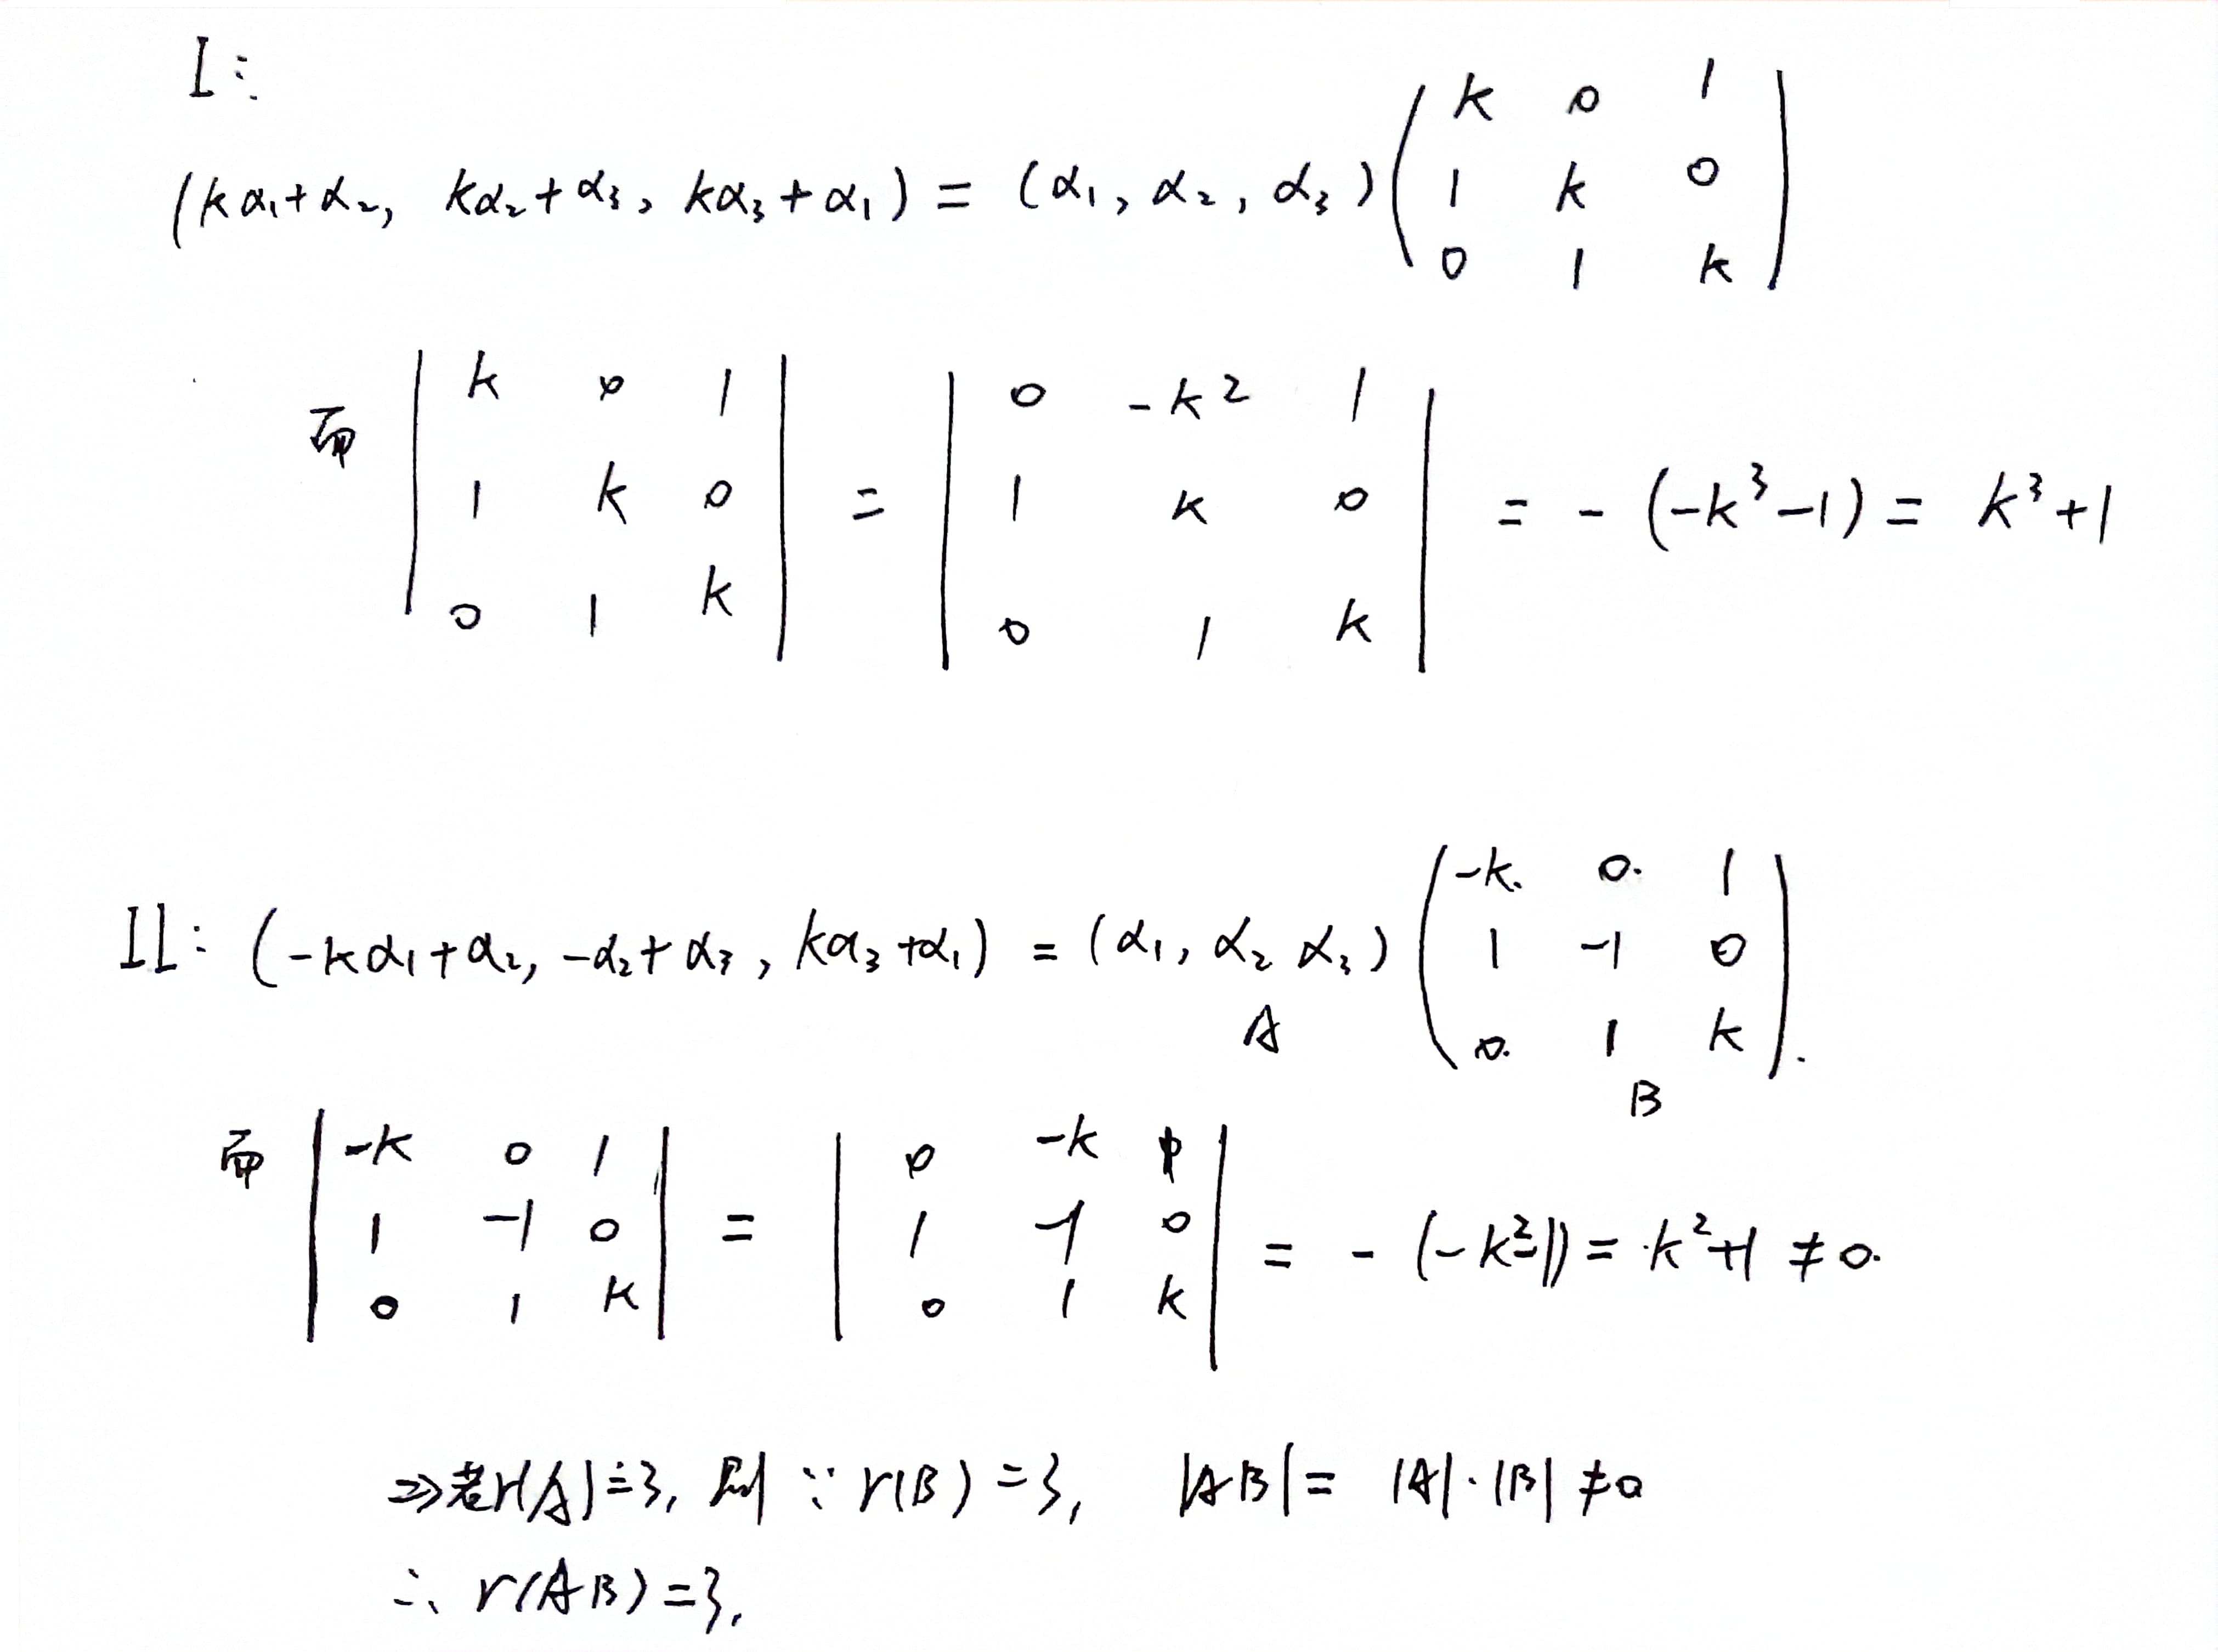 I:
(kα₁+α₂, kα₂+α₃, kα₃+α₁) = (α₁, α₂, α₃) ( k 0 1
1 k 0
0 1 k )
而 | k 0 1 | = | 0 -k² 1 |
| 1 k 0 | | 1 k 0 | = -(-k³-1) = k³+1
| 0 1 k | | 0 1 k |
II: (-kα₁+α₂, -α₂+α₃, kα₃+α₁) = (α₁, α₂ α₃) ( -k. 0. 1
1 -1 0
0. 1 k ).
A B
而 | -k 0 1 | = | 0 -k 1 |
| 1 -1 0 | | 1 -1 0 | = -(-k²-1) = k²+1 ≠ 0.
| 0 1 k | | 0 1 k |
⇒若r(A)=3, 则 ∵ r(B)=3, |AB| = |A|·|B| ≠0
∴ r(AB)=3,